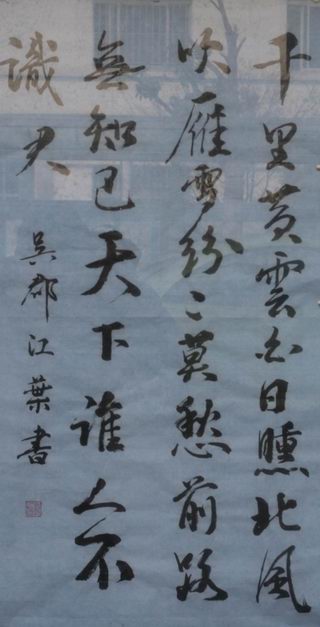 千里黄雲白日曛北風
吹雁雪紛〻莫愁前路
無知已天下誰人不
識君
吳郡江葉書